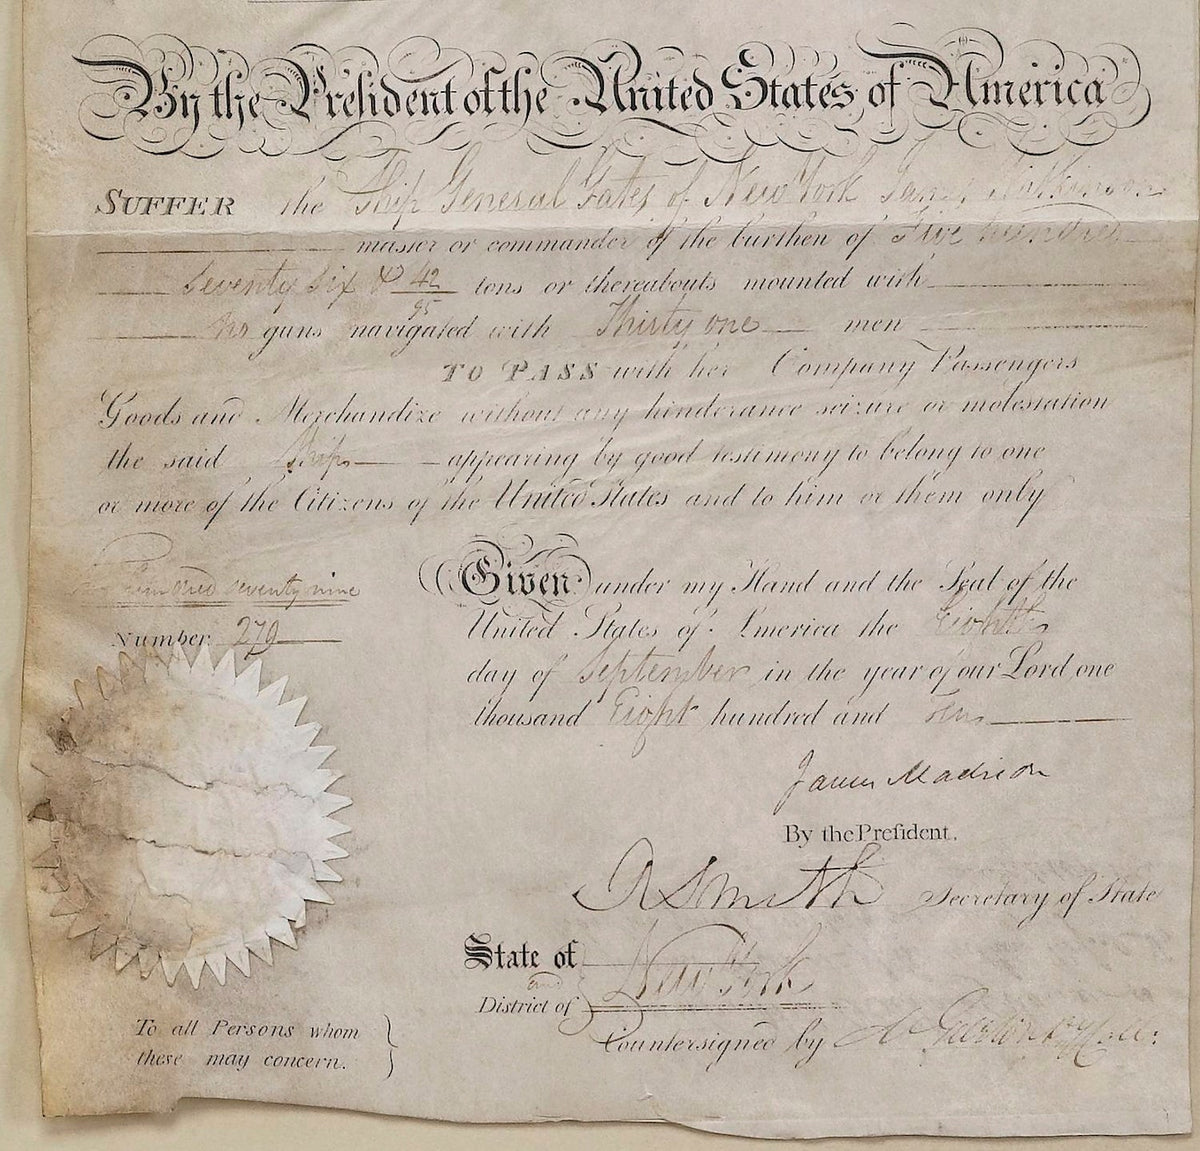 By the President of the United States of America
SUFFER the Ship General Gates of New York
master or commander of the burthen of Five hundred
Seventy Six & 42/95 tons or thereabouts mounted with
no guns navigated with Thirty one men
TO PASS with her Company Passengers
Goods and Merchandize without any hinderance seizure or molestation
the said Ship appearing by good testimony to belong to one
or more of the Citizens of the United States and to him or them only
hundred seventy nine
Number 279
Given under my Hand and the Seal of the
United States of America the Eighth
day of September in the year of our Lord one
thousand Eight hundred and Ten
James Madison
By the Preſident.
R Smith Secretary of State
State of
and
New York
District of
Countersigned by
To all Persons whom
these may concern.